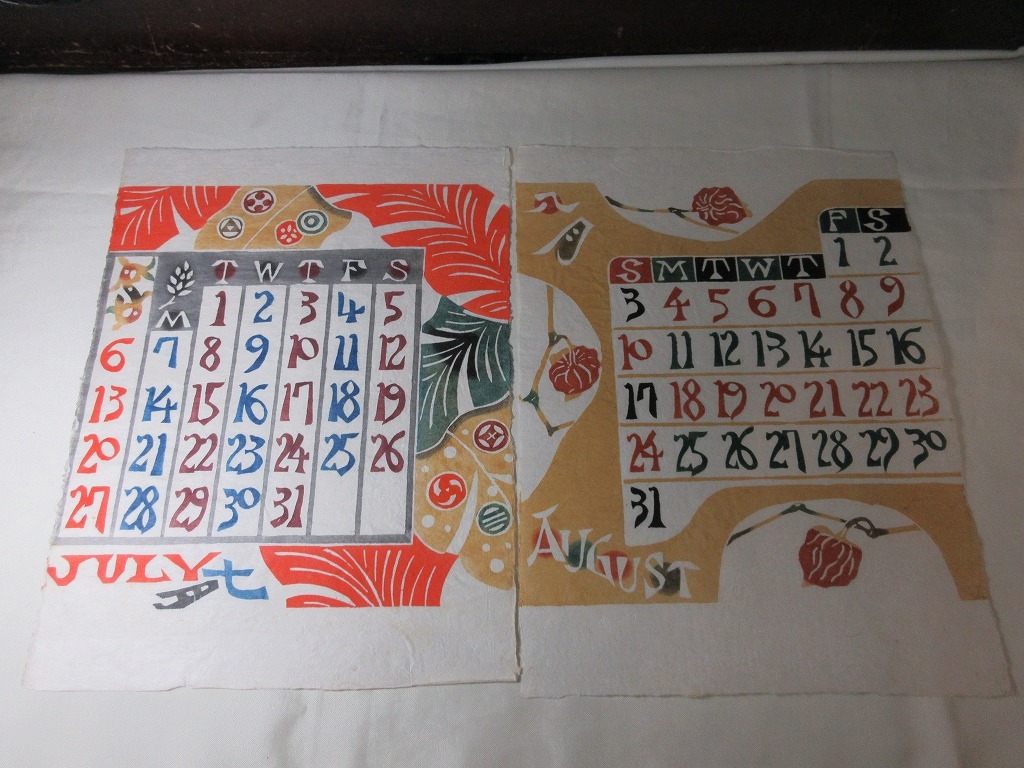 M T W T F S
1 2 3 4 5
6 7 8 9 10 11 12
13 14 15 16 17 18 19
20 21 22 23 24 25 26
27 28 29 30 31
JULY 七
月
八
F S
1 2
S M T W T
3 4 5 6 7 8 9
10 11 12 13 14 15 16
17 18 19 20 21 22 23
24 25 26 27 28 29 30
31
AUGUST